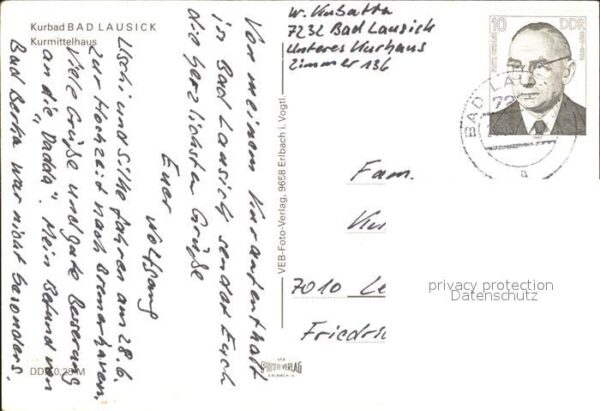 Kurbad BAD LAUSICK
Kurmittelhaus
Von meinem Kuraufenthalt
in Bad Lausick sendet Euch
die herzlichsten Grüße
Euer Wolfgang
Uschi und Silke fahren am 28.6.
zur Hochzeit nach Bremerhaven.
Viele Grüße und gute Besserung
an die "Dadda". Mein Befund von
Bad Berka war nicht besonders.
DDR 0,25 M
VEB-Foto-Verlag, 9658 Erlbach i. Vogtl.
VEB
FOTO-VERLAG
ERLBACH
W. Kubatta
7232 Bad Lausick
Unteres Kurhaus
Zimmer 136
10
DDR
BAD LAU
72
a
Fam.
Ku
7010 Le
Friedri
privacy protection
Datenschutz